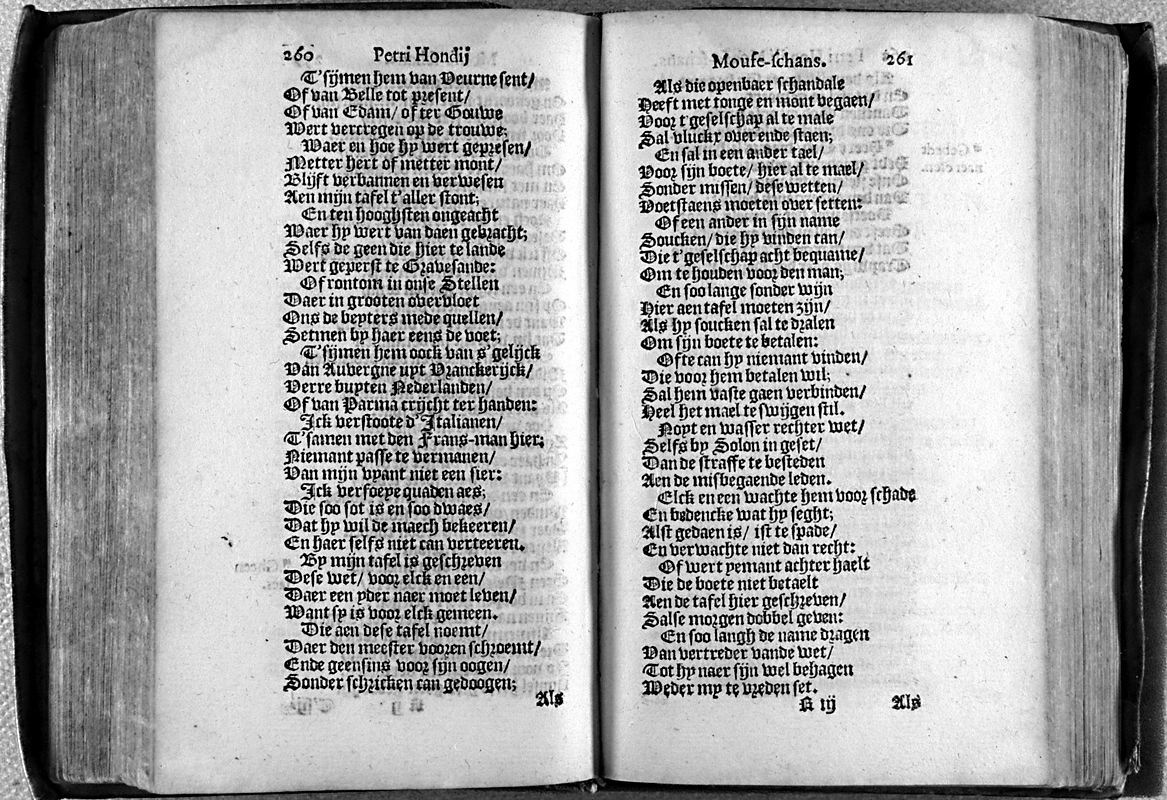 260 Petri Hondij
T'sijmen hem van Veurne sent/
Of van Belle tot present/
Of van Edam/ of ter Gouwe
Wert vercregen op de trouwe;
Waer en hoe hy wert gepresen/
Metter hert of metter mont/
Blijft verbannen en verwesen
Aen mijn tafel t'aller stont;
En ten hooghsten ongeacht
Waer hy wert van daen gebracht;
Selfs de geen die hier te lande
Wert geperst te Gravesande:
Of rontom in onse Stellen
Daer in grooten overvloet
Ons de beyters mede quellen/
Setmen by haer eens de voet;
T'sijmen hem oock van s'gelijck
Van Auvergne uyt Vranckerijck/
Verre buyten Nederlanden/
Of van Parma crijcht ter handen:
Ick verstoote d'Italianen/
T'samen met den Frans-man hier;
Niemant passe te vermanen/
Van mijn vyant niet een sier:
Ick verfoeye quaden aes;
Die soo sot is en soo dwaes/
Dat hy wil de maech bekeeren/
En haer selfs niet can verteeren.
By mijn tafel is geschreven
Dese wet/ voor elck en een/
Daer een yder naer moet leven/
Want sy is voor elck gemeen.
Die aen dese tafel noemt/
Daer den meester vooren schroemt/
Ende geensins voor sijn oogen/
Sonder schricken can gedoogen;
Als
Mouse-schans. 261
Als die openbaer schandale
Heeft met tonge en mont begaen/
Voor t'geselschap al te male
Sal vluckx over ende staen;
En sal in een ander tael/
Voor sijn boete/ hier al te mael/
Sonder missen/ dese wetten/
Voetstaens moeten over setten:
Of een ander in sijn name
Soucken/ die hy vinden can/
Die t'geselschap acht bequame/
Om te houden voor den man;
En soo lange sonder wijn
Hier aen tafel moeten zijn/
Als hy soucken sal te dralen
Om sijn boete te betalen:
Ofte can hy niemant vinden/
Die voor hem betalen wil;
Sal hem vaste gaen verbinden/
Heel het mael te swijgen stil.
Noyt en wasser rechter wet/
Selfs by Solon in geset/
Dan de straffe te besteden
Aen de misbegaende leden.
Elck en een wachte hem voor schade
En bedencke wat hy seght;
Alst gedaen is/ ist te spade/
En verwachte niet dan recht:
Of wert yemant achter haelt
Die de boete niet betaelt
Aen de tafel hier geschreven/
Salse morgen dobbel geven:
En soo langh de name dragen
Van vertreder vande wet/
Tot hy naer sijn wel behagen
Weder my te vreden set.
R iij Als